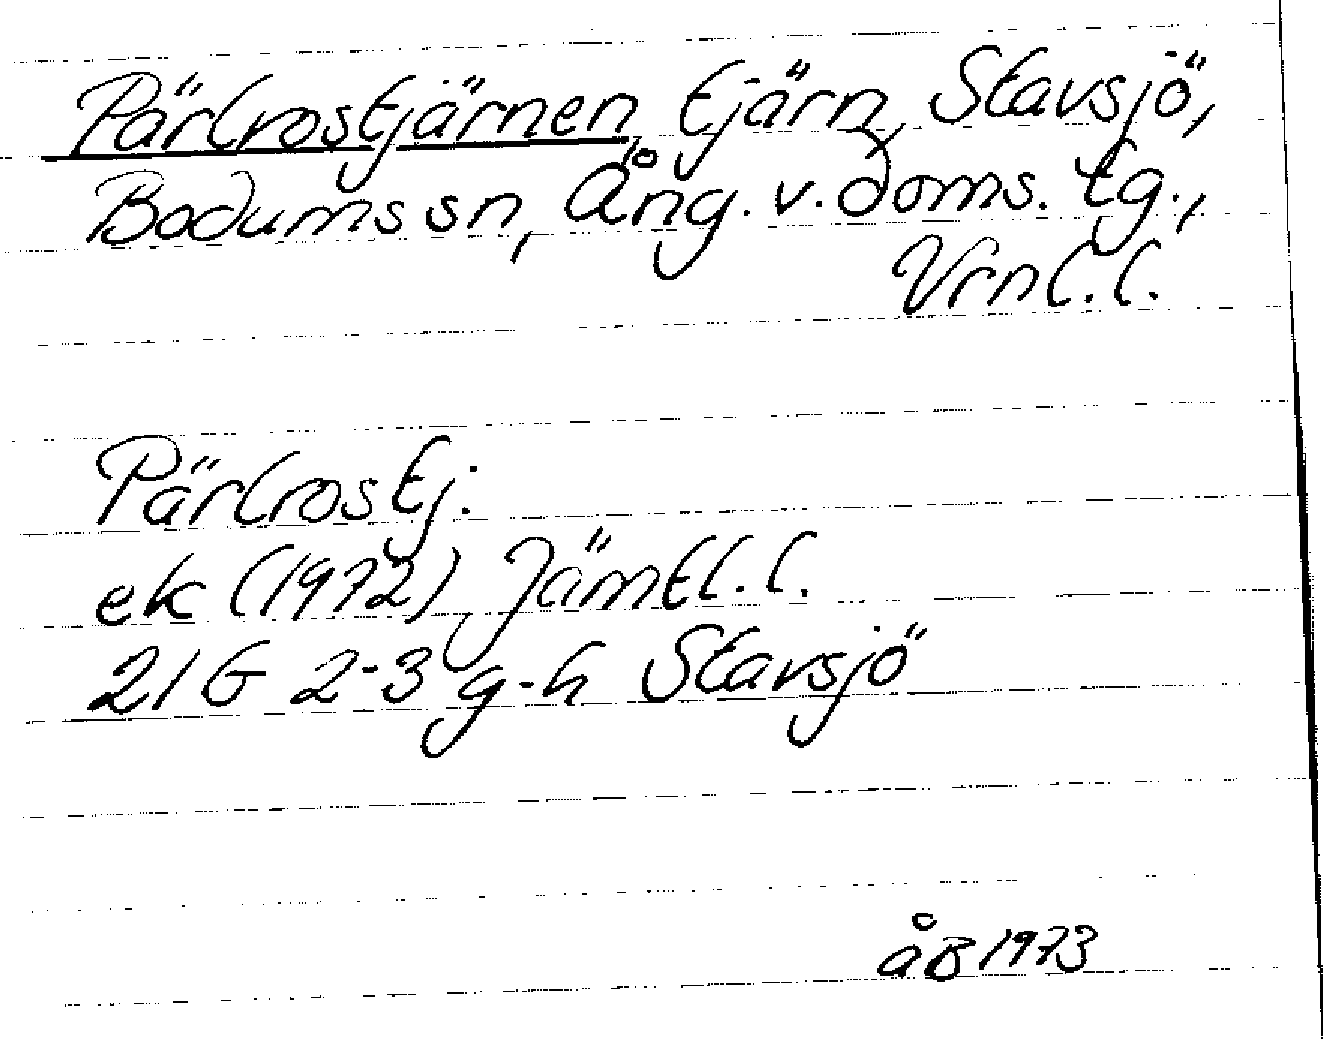 Pärlrostjärnen, tjärn, Stavsjö,
Bodums sn, Ång. v. doms. tg.,
Vrnl. l.
Pärlrostj.
ek (1972) Jämtl. l.
21G 2-3 g-h Stavsjö
åB 1973